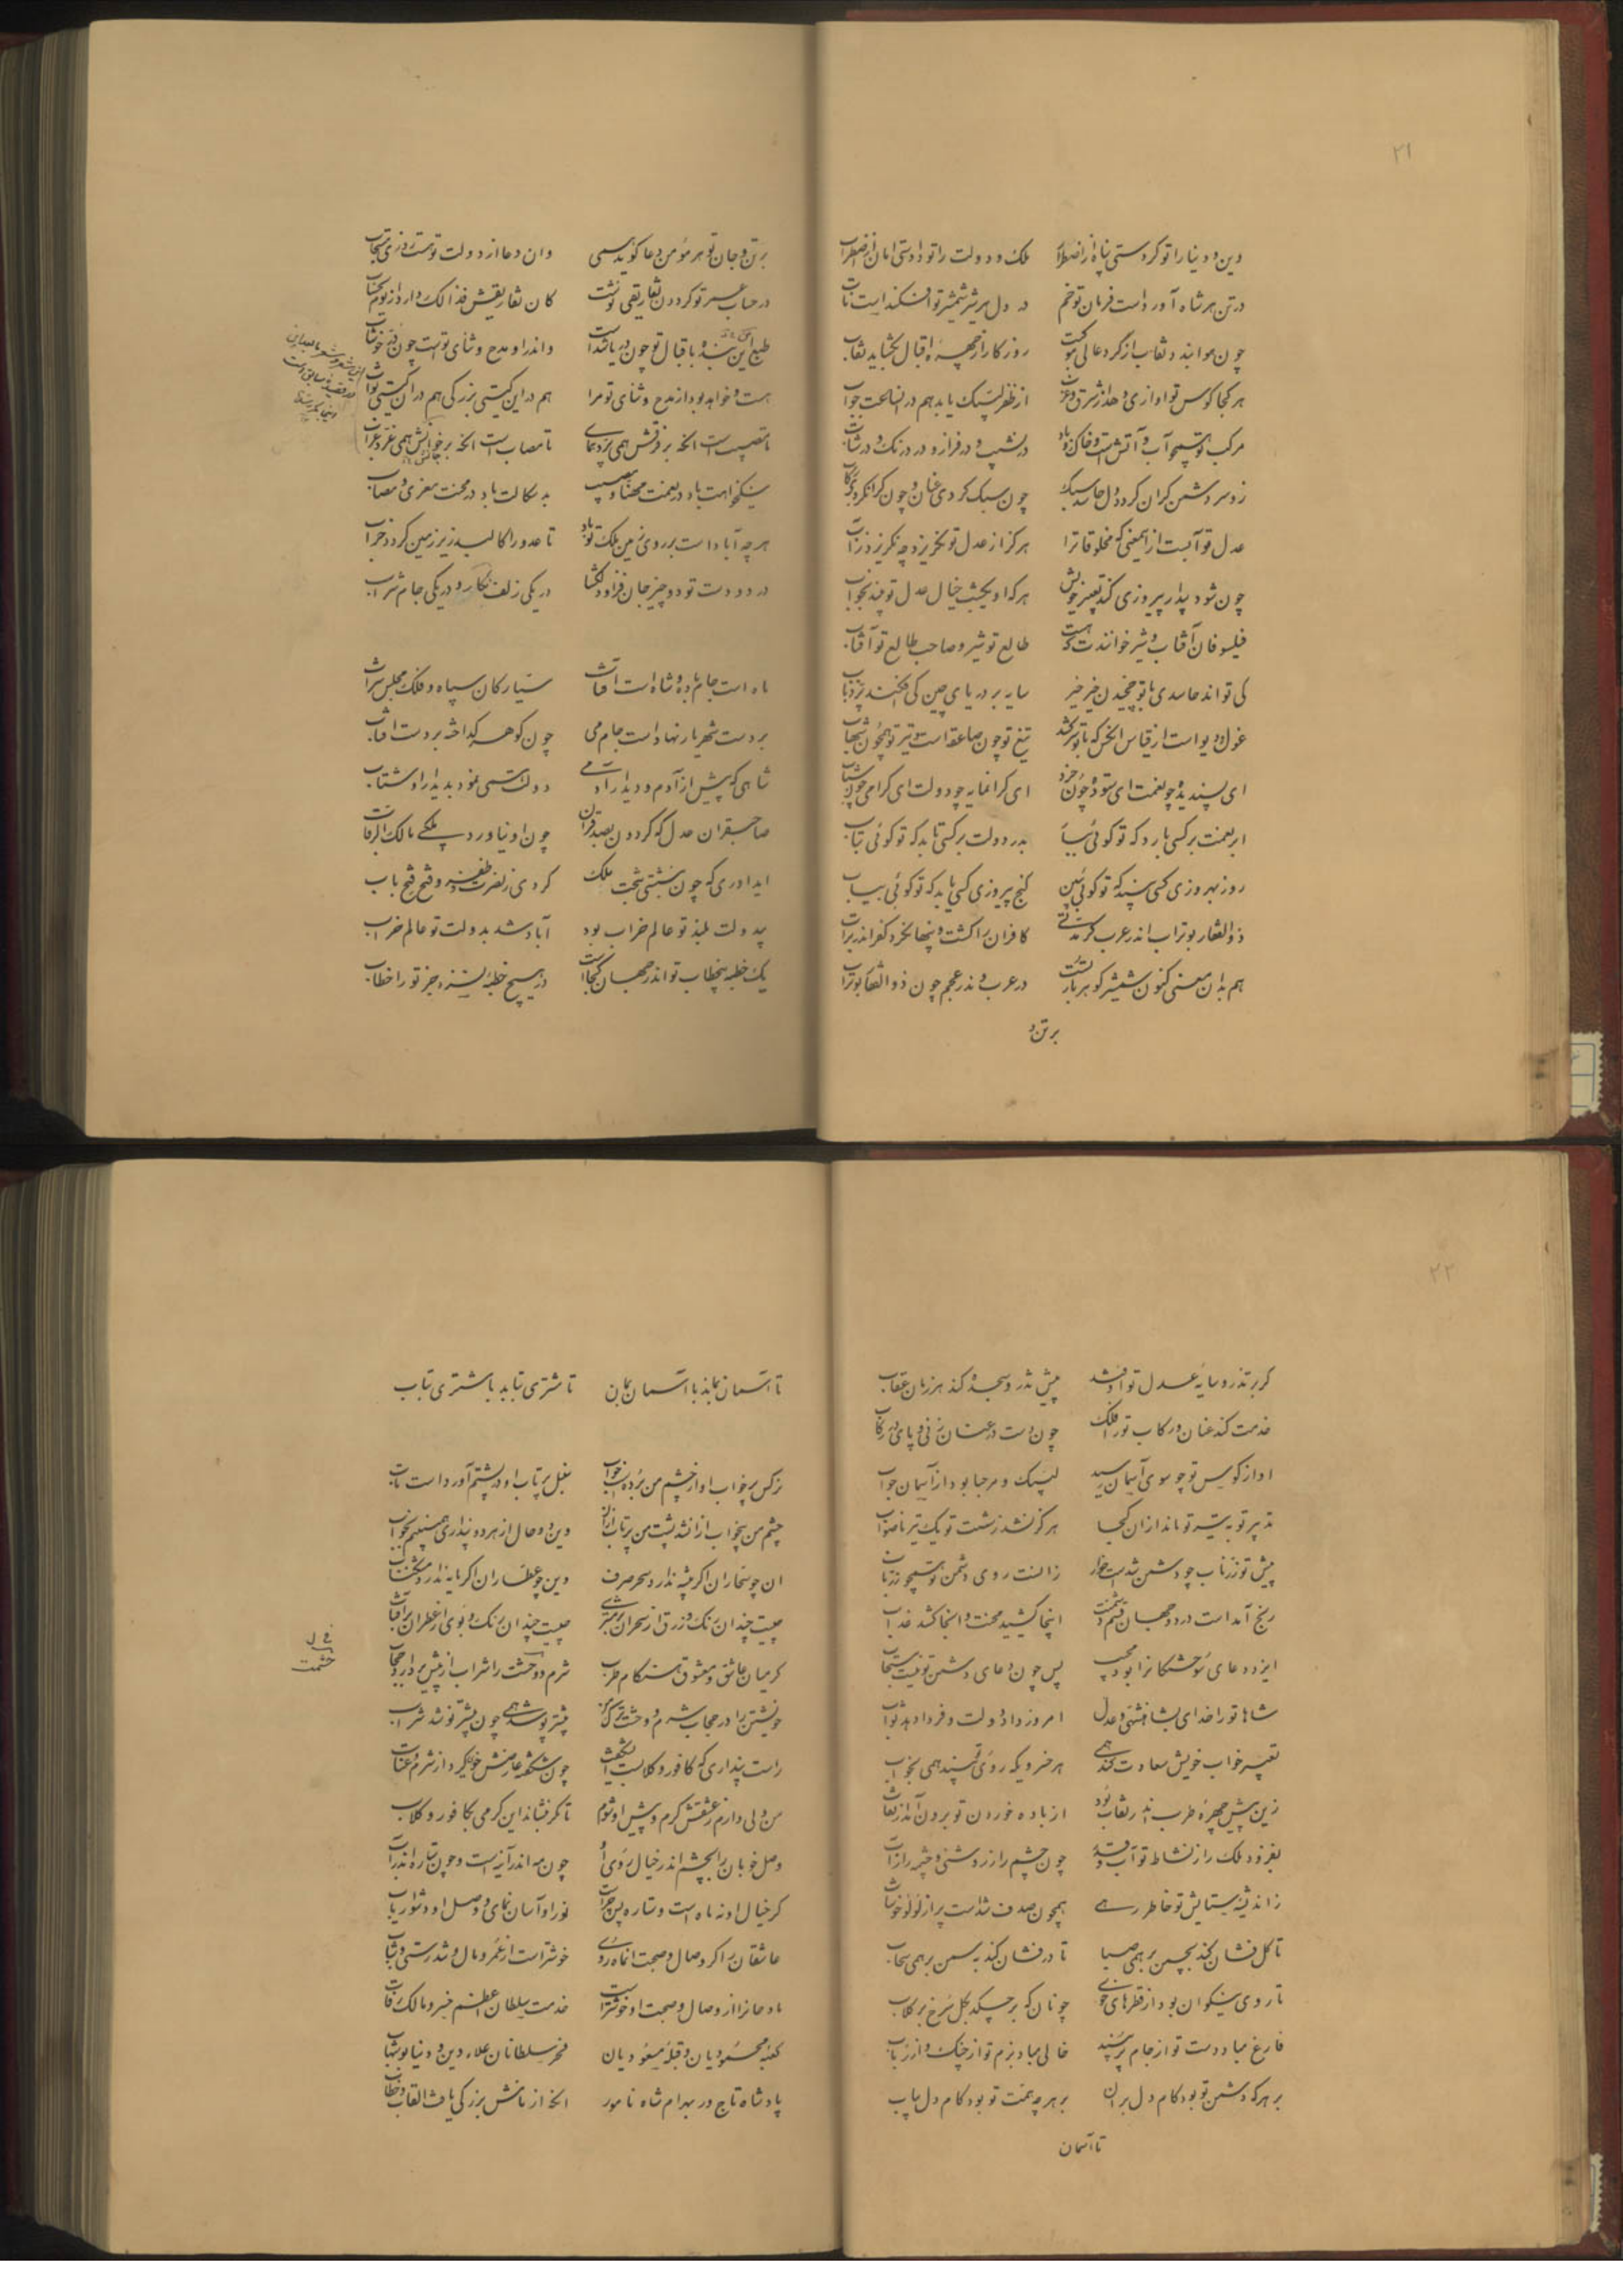 ۲۱
دین و دنیا را تو کردستی پناه از اضطراب ملک و دولت را تو دادستی امان از اضطراب
در تن هر شاه آورداست فرمان تو خم در دل هر شیر شمشیر تو افکنداست تاب
چون موابند و نقاب از گرد عالی موکبت روزکار از چهره اقبال بکشاید نقاب
هر کجا کوس تو اوازی دهد از شرق و غرب از ظفر لبیک یابد هم در انساعت جواب
مرکب تو همچو آب و آتش است و خاک و باد در نشیب و در فراز و در درنک و در شتاب
زو سر دشمن کران کردد دل حاسد سبک چون سبک کردی عنان و چون کران کردی رکاب
عدل تو آبست از آنمعنی که مخلوقاترا هرکز از عدل تو نکریزد چه نکریزد ز آب
چون شود بیدار پیروزی کند تعبیر خویش هر که او یکشب خیال عدل تو بیند بخواب
فیلسوفان آفتاب و شیر خوانندت که هست طالع تو شیر و صاحب طالع تو آفتاب
کی تواند حاسدی با تو چخیدن خیر خیر سایه بر دریای چین کی افکند پر ذباب
غول و دیو است از قیاس انکس که با تو سر کشد تیغ تو چون صاعقه است و تیر تو همچون شهاب
ای پسندیده چو نعمت ای ستوده چون خرد ای کرانمایه چو دولت ای کرامی چون شباب
ابر نعمت بر کسی بارد که تو کوئی ببار بدر دولت بر کسی تابد که تو کوئی بتاب
روز بهروزی کسی بیند که تو کوئی ببین کنج پیروزی کسی یابد که تو کوئی بیاب
ذوالفقار بوتراب اندر عرب کر مدتی کافران را کشت و پنهان کرد کفر اندر تراب
هم بدان معنی کنون شمشیر کوهربار تست در عرب و ندر عجم چون ذوالفقار بوتراب
بر تن و
بر تن و جان تو هر مؤمن دعا کوید همی وان دعا از دولت تو هست روزی مستجاب
در حساب عمر تو کردون تفاریقی نوشت کان تفاریقش فذالک دارد از یوم الحساب
طبع این بنده باقبال تو چون دریا شداست و اندر او مدح و ثنای تو است چون در خوشاب
هست و خواهد بود از مدح و ثنای تو مرا هم در این کیتی بزرکی هم در آن کیتی ثواب
تا مصیب است انکه بر فرقش همی پرد همای تا مصاب است انکه بر خوانش همی غرد غراب
نیکخواهت باد در نعمت مهنا و مصیب بدسکالت باد در محنت معزی و مصاب
هر چه آباد است بر روی زمین ملک تو باد تا عدو را کالبد زیر زمین کردد خراب
در دو دست تو دو چیز جان فزا و دلکشا در یکی زلف نکار و در یکی جام شراب
ماه است جام باده و شاه است آفتاب سیارکان سپاه و فلک مجلس شراب
بر دست شهریار نهاد است جام می چون کوهر کداخته بر دست آفتاب
شاهی که پیش از آدم و دیدار آدمی دولت همی نمود بدیدار او شتاب
صاحبقران عدل که کردون بصد قران چون او نیاورد ملکی مالک الرقاب
ای داوری که چون بنشستی بتخت ملک کردی ز نصرت و ظفر و فتح فتح باب
بی دولت بلند تو عالم خراب بود آباد شد بدولت تو عالم خراب
یک خطبه بیخطاب تو اندر جهان کجاست در هیچ خطبه نیست بجز تو را خطاب
۲۲
کر بر تذرو سایه عدل تو اوفتد پیش تذرو سجده کند هر زمان عقاب
خدمت کند عنان و رکاب تو را فلک چون دست در عنان زنی و پای در رکاب
اواز کوس تو چو سوی آسمان رسید لبیک و مرحبا بود از آسمان جواب
تدبیر تو به تیر تو ماند از ان کجا هرکز نشد ز شست تو یک تیر ناصواب
پیش تو زر ناب چو دشمن شداست خوار زانست روی دشمن تو همچو زر ناب
رنج آمد است در دو جهان قسم دشمنت اینجا کشید محنت و انجا کشد عذاب
ایزد دعای خستکانرا بود مجیب پس چون دعای دشمن تو نیست مستجاب
شاها تو را خدای بشاهنشهی و عدل امروز داد دولت و فردا دهد ثواب
تعبیر خواب خویش سعادت کند همی هر خسرویکه روی تو بیند همی بخواب
زین پیش چهره طرب اندر نقاب بود از باده خوردن تو برون آمد از نقاب
بفزود ملک را ز نشاط تو آب و قدر چون چشم را ز روشنی و چشمه را ز آب
ز اندیشه ستایش تو خاطر رهی همچون صدف شداست پر از لؤلؤ خوشاب
تا کل فشان کند بچمن بر همی صبا تا در فشان کند بسمن بر همی سحاب
تا روی نیکوان بود از قطرهای خوی چونان که بر چکد بکل سرخ بر کلاب
فارغ مباد دست تو از جام می خالی مباد بزم تو از چنک و از رباب
بر هر که دشمن تو بود کام دل بران بر هر چه نعمت تو بود کام دل بیاب
تا آسمان
تا آسمان بماند با آسمان بمان تا مشتری بتابد با مشتری بتاب
نرکس پر خواب او از چشم من برده است خواب سنبل پر تاب او در پشتم آورد است تاب
چشم من بیخواب از انشد پشت من پر تاب از ان وین دو حال از هر دو پنداری همی بینم بخواب
ان چو سحاران اکر چه ندارد سحر صرف وین چو عطاران اکر مایه ندارد مشکناب
چیست چندان رنک و زرق از سحر ان بر مشتری چیست چندان رنک و بوی از عطر این بر آفتاب
کر میان عاشق و معشوق هنکام طرب شرم و وحشت را شراب از پیش بردارد حجاب
خویشتن را در حجاب شرم و وحشت ترک من بیشتر پوشد همی چون بیشتر نوشد شراب
راست پنداری که کافور و کلابست ای شکفت چون شکفته عارضش خوی کیرد از شرم و عتاب
من دلی دارم ز عشقش کرم و پیش او شوم تا مکر بنشاند این کرمی بکافور و کلاب
وصل خوبان را بچشم اندر خیال روی او چون مه اندر آینه است و چون ستاره اندر آب
کر خیال او نه ماه است و ستاره پس چراست نور او آسان نمای و وصل او دشوار یاب
عاشقان را کر وصال و صحبت ان ماهروی خوشتر است از عمر و مال و تندرستی و شباب
مادحانرا از وصال و صحبت او خوشتر است خدمت سلطان اعظم خسرو مالک رقاب
کعبه محمودیان و قبله مسعودیان فخر سلطانان علاء دین و دنیا بوشهاب
پادشاه تاج ور بهرام شاه نامور انکه از نامش بزرکی یافت القاب و خطاب